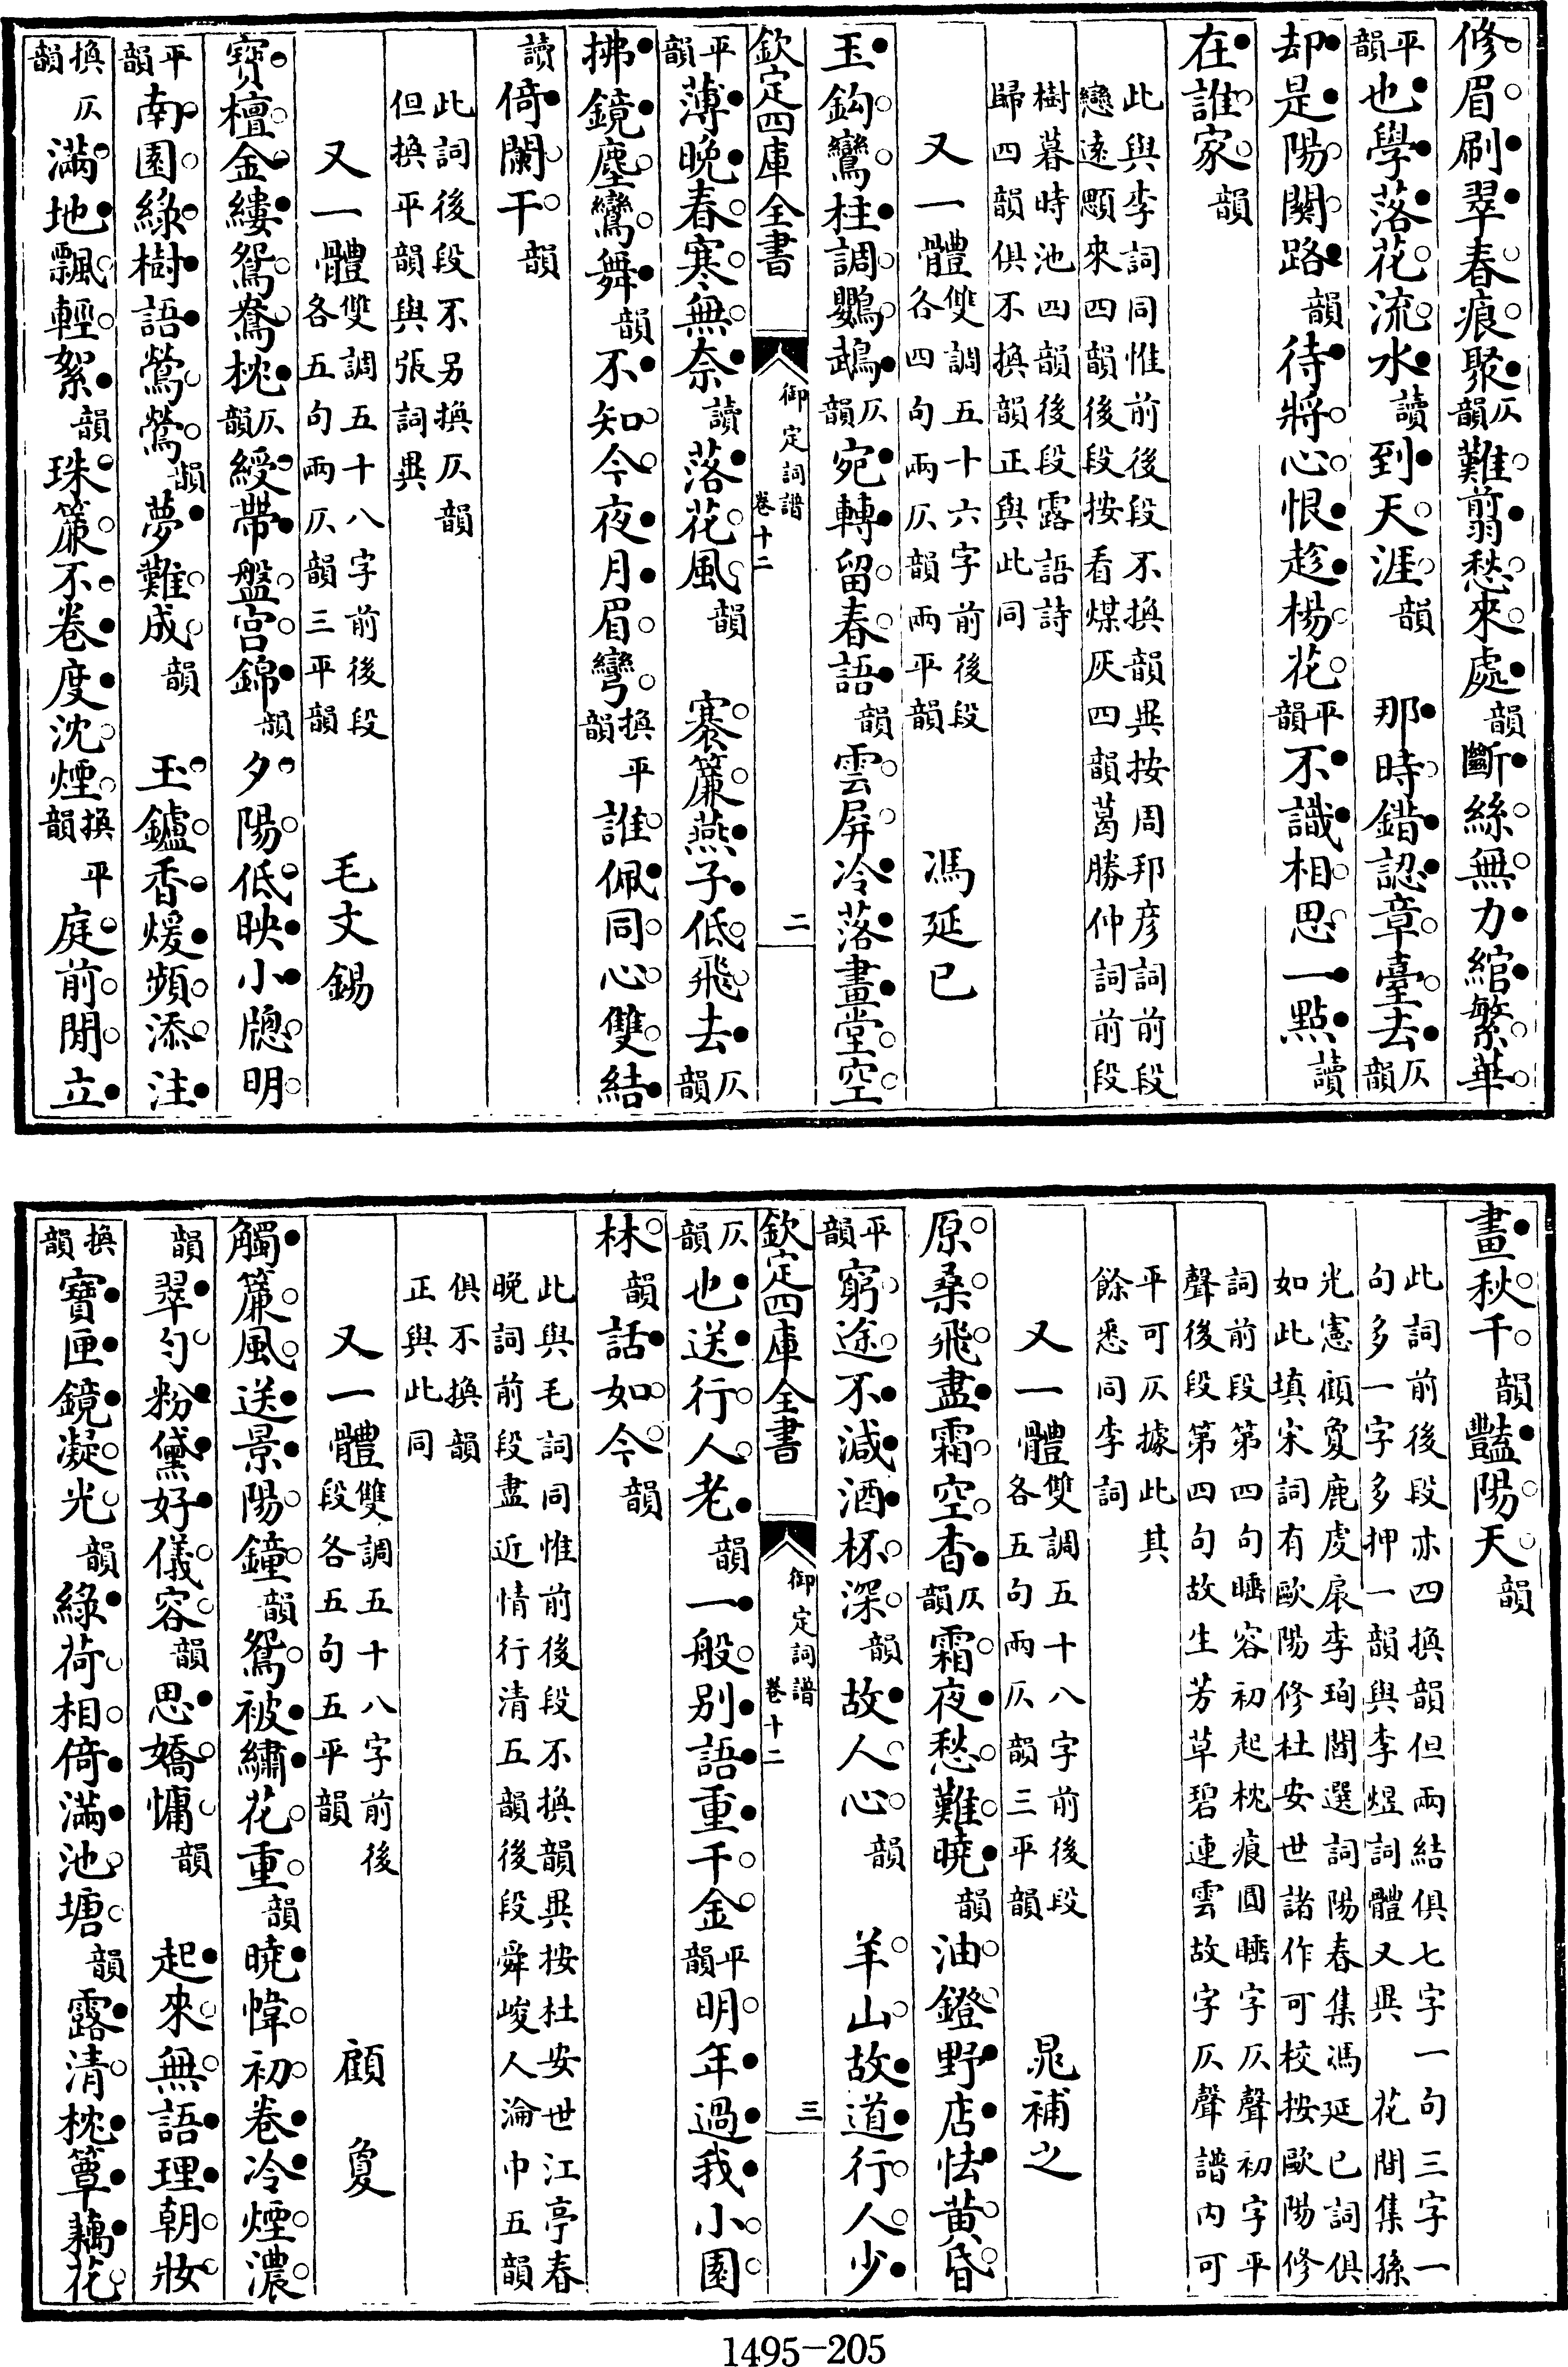 修眉刷翠春痕聚仄韻難翦愁來處韻斷絲無力綰繁華
平韻也學落花流水讀到天涯韻　那時錯認章臺去仄韻
却是陽關路韻待將心恨趁楊花平韻不識相思一點讀
在誰家韻
此與李詞同惟前後段不換韻異按周邦彦詞前段
戀遠顋來四韻後段按看煤灰四韻葛勝仲詞前段
樹暮時池四韻後段露語詩
歸四韻俱不換韻正與此同
又一體雙調五十六字前後段各四句兩仄韻兩平韻　馮延已
玉鈎鸞柱調鸚鵡仄韻宛轉留春語韻雲屏冷落畫堂空
欽定四庫全書　御定詞譜　卷十二　二
平韻薄晚春寒無奈讀落花風韻　褰簾燕子低飛去仄韻
拂鏡塵鸞舞韻不知今夜月眉彎換平韻誰佩同心雙結
讀倚闌干韻
此詞後段不另換仄韻
但換平韻與張詞異
又一體雙調五十八字前後段各五句兩仄韻三平韻　毛文錫
寶檀金縷鴛鴦枕仄韻綬帶盤宮錦韻夕陽低映小牕明
平韻南園綠樹語鶯鶯韻夢難成韻　玉鑪香煖頻添注
換仄韻滿地飄輕絮韻珠簾不卷度沈煙換平韻庭前閒立
畫秋千韻豔陽天韻
此詞前後段亦四換韻但兩結俱七字一句三字一
句多一字多押一韻與李煜詞體又異　花間集孫
光憲顧敻鹿虔扆李珣閻選詞陽春集馮延已詞俱
如此填宋詞有歐陽修杜安世諸作可校按歐陽修
詞前段第四句睡容初起枕痕圓睡字仄聲初字平
聲後段第四句故生芳草碧連雲故字仄聲譜内可
平可仄據此其
餘悉同李詞
又一體雙調五十八字前後段各五句兩仄韻三平韻　晁補之
原桑飛盡霜空杳仄韻霜夜愁難曉韻油鐙野店怯黃昏
平韻窮途不減酒杯深韻故人心韻　羊山故道行人少
欽定四庫全書　御定詞譜　卷十二　三
仄韻也送行人老韻一般别語重千金平韻明年過我小園
林韻話如今韻
此與毛詞同惟前後段不換韻異按杜安世江亭春
晚詞前段盡近情行清五韻後段舜峻人淪巾五韻
俱不換韻
正與此同
又一體雙調五十八字前後段各五句五平韻　顧敻
觸簾風送景陽鐘韻鴛被繡花重韻曉幃初卷冷煙濃
韻翠勻粉黛好儀容韻思嬌慵韻　起來無語理朝妝
換韻寶匣鏡凝光韻綠荷相倚滿池塘韻露清枕簟藕花
1495-205